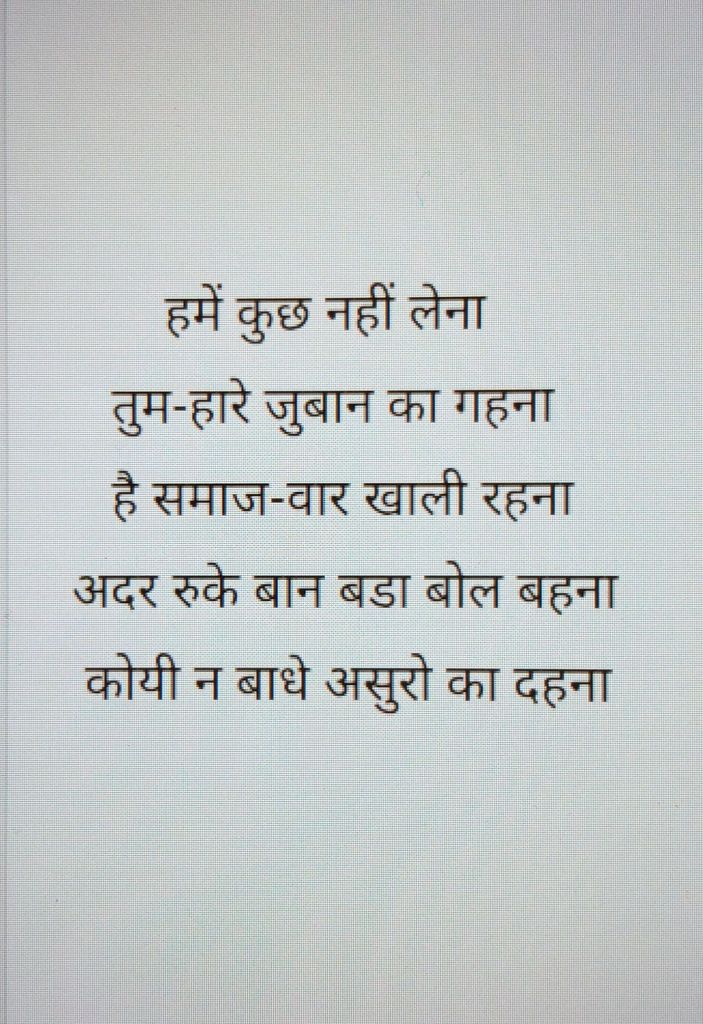 हमें कुछ नहीं लेना
तुम-हारे जुबान का गहना
है समाज-वार खाली रहना
अदर रुके बान बडा बोल बहना
कोयी न बाधे असुरो का दहना